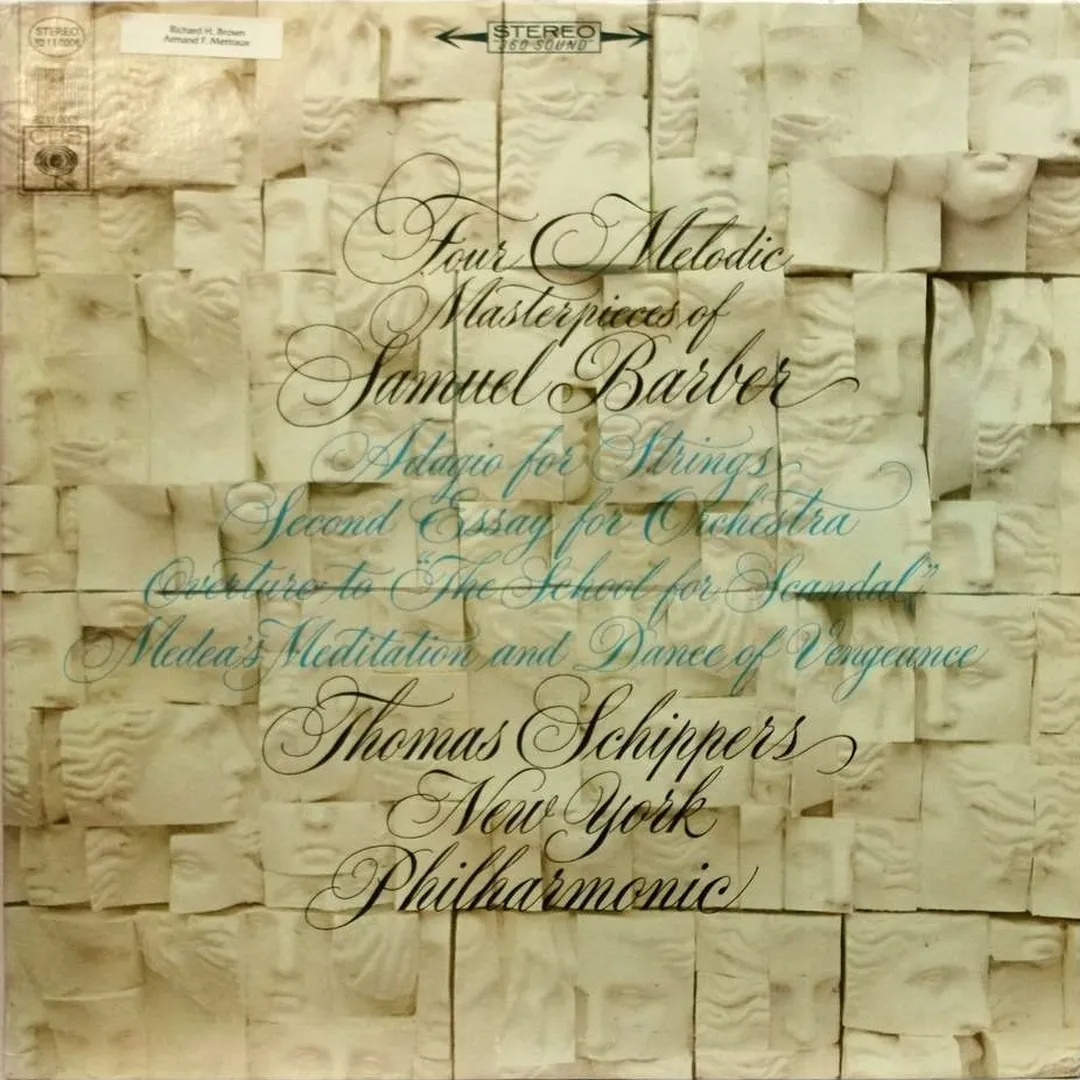 STEREO
32 11 0006
Richard H. Brown
Armand F. Merizaux
STEREO
"360 SOUND"
32 11 0005
CBS
Four Melodic
Masterpieces of
Samuel Barber
Adagio for Strings
Second Essay for Orchestra
Overture to "The School for Scandal"
Medea's Meditation and Dance of Vengeance
Thomas Schippers
New York
Philharmonic